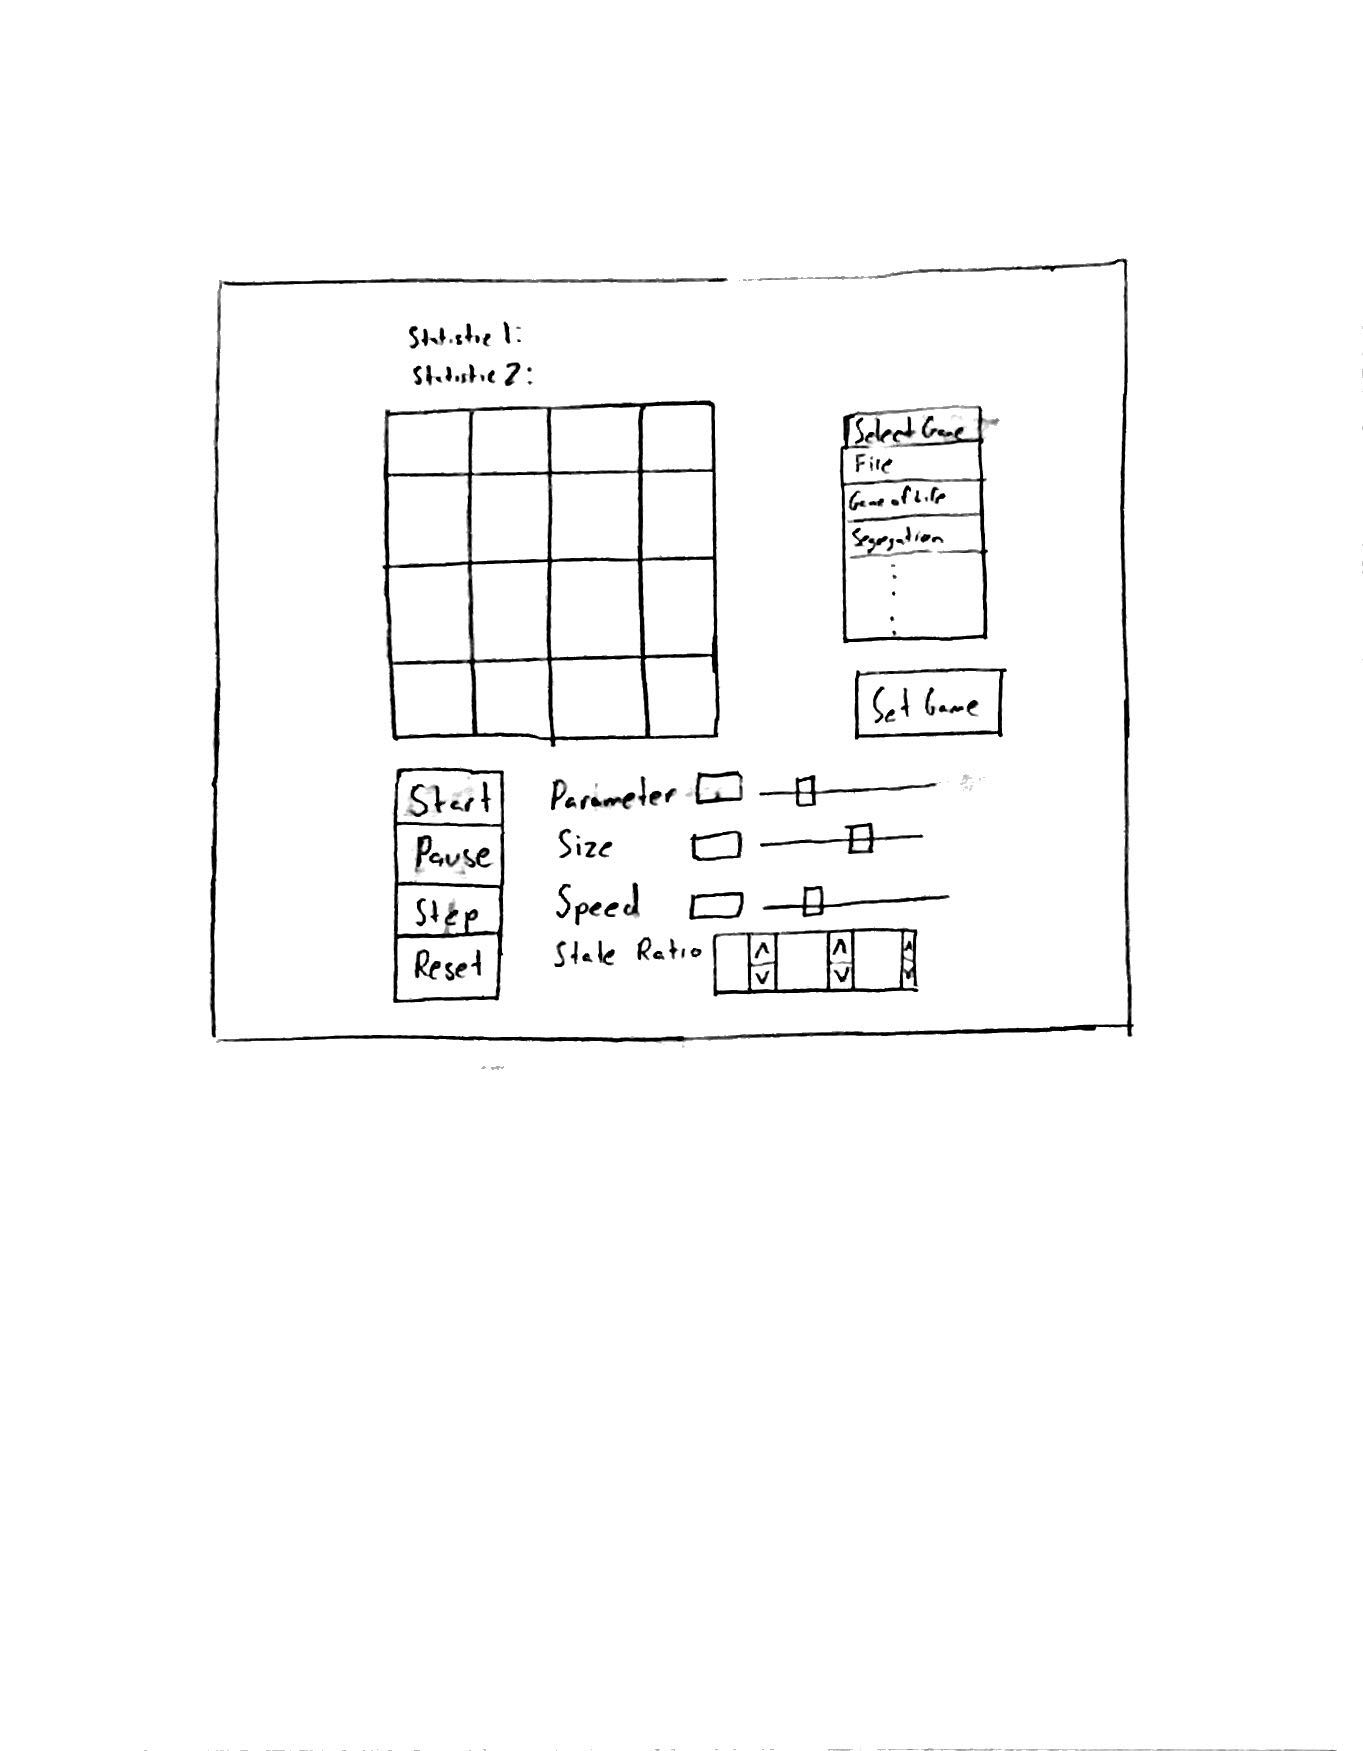 Statistic 1:
Statistic 2:
Select Game
Fire
Game of Life
Segregation
Set Game
Start
Pause
Step
Reset
Parameter
Size
Speed
State Ratio